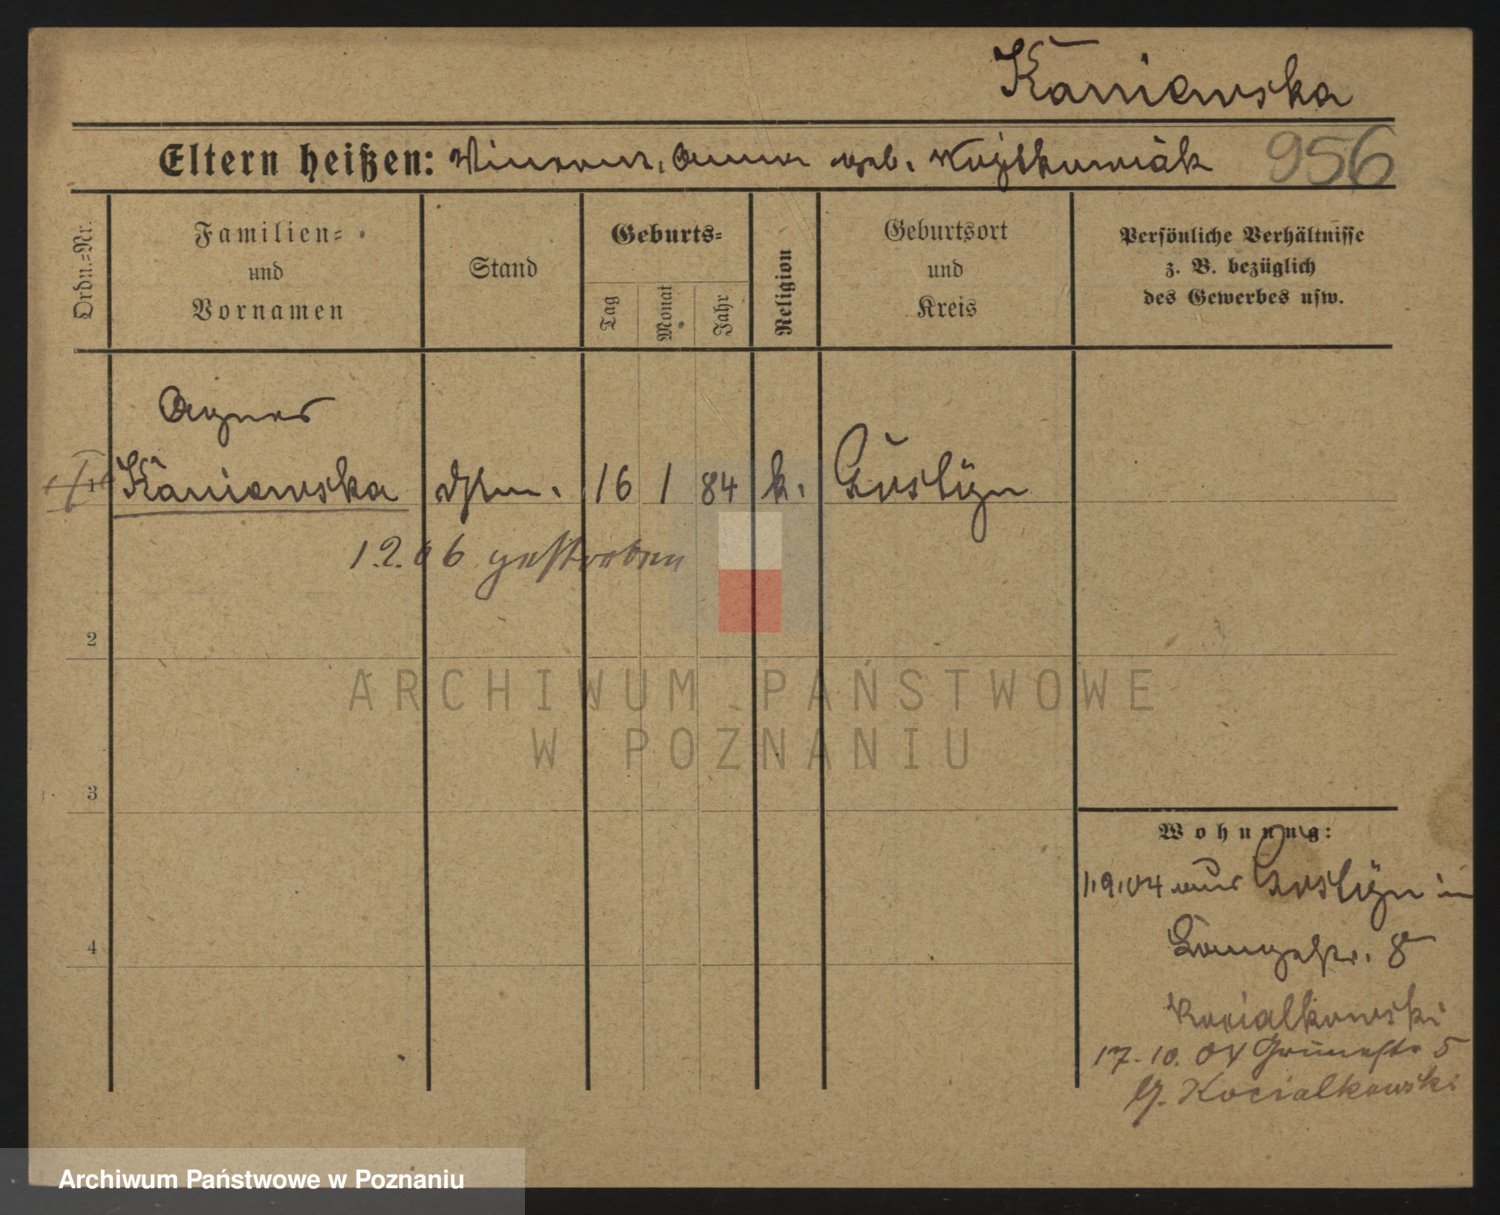 Kaniewska
Eltern heißen: Vincenz, Anna geb. Wojtkowiak 956
Ordn.-Nr.
Familien-
und
Vornamen
Stand
Geburts-
Tag
Monat
Jahr
Religion
Geburtsort
und
Kreis
Persönliche Verhältnisse
z. B. bezüglich
des Gewerbes usw.
Agnes
1 Kaniewska 16 1 84 k. Gostyn
1.2.06 gestorben
2
ARCHIWUM PAŃSTWOWE
W POZNANIU
3
Wohnung:
1.9.04 aus Gostyn in
Langestr. 8
4
Kocialkowski
17.10.04 Grünestr 5
Kocialkowski
Archiwum Państwowe w Poznaniu